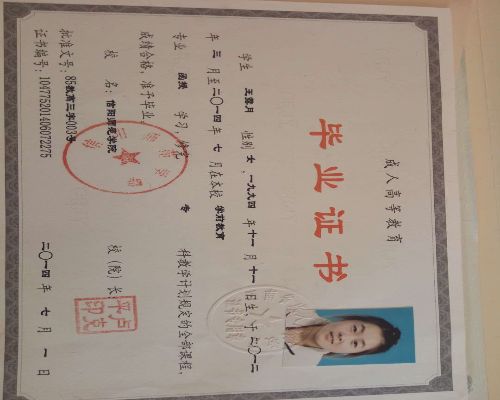 成人高等教育
毕业证书
学生 王露月 性别 女，一九九四 年 十一 月 十一 日生，于 二〇一二
年 三 月至 二〇一四 年 七 月在本校 学前教育
专业 函授 学习，修完 专 科教学计划规定的全部课程，
成绩合格，准予毕业。
校 名：信阳师范学院 校（院）长：
批准文号：85教育三字003号
证书编号：104775201406072275 二〇一四 年 七 月 一 日